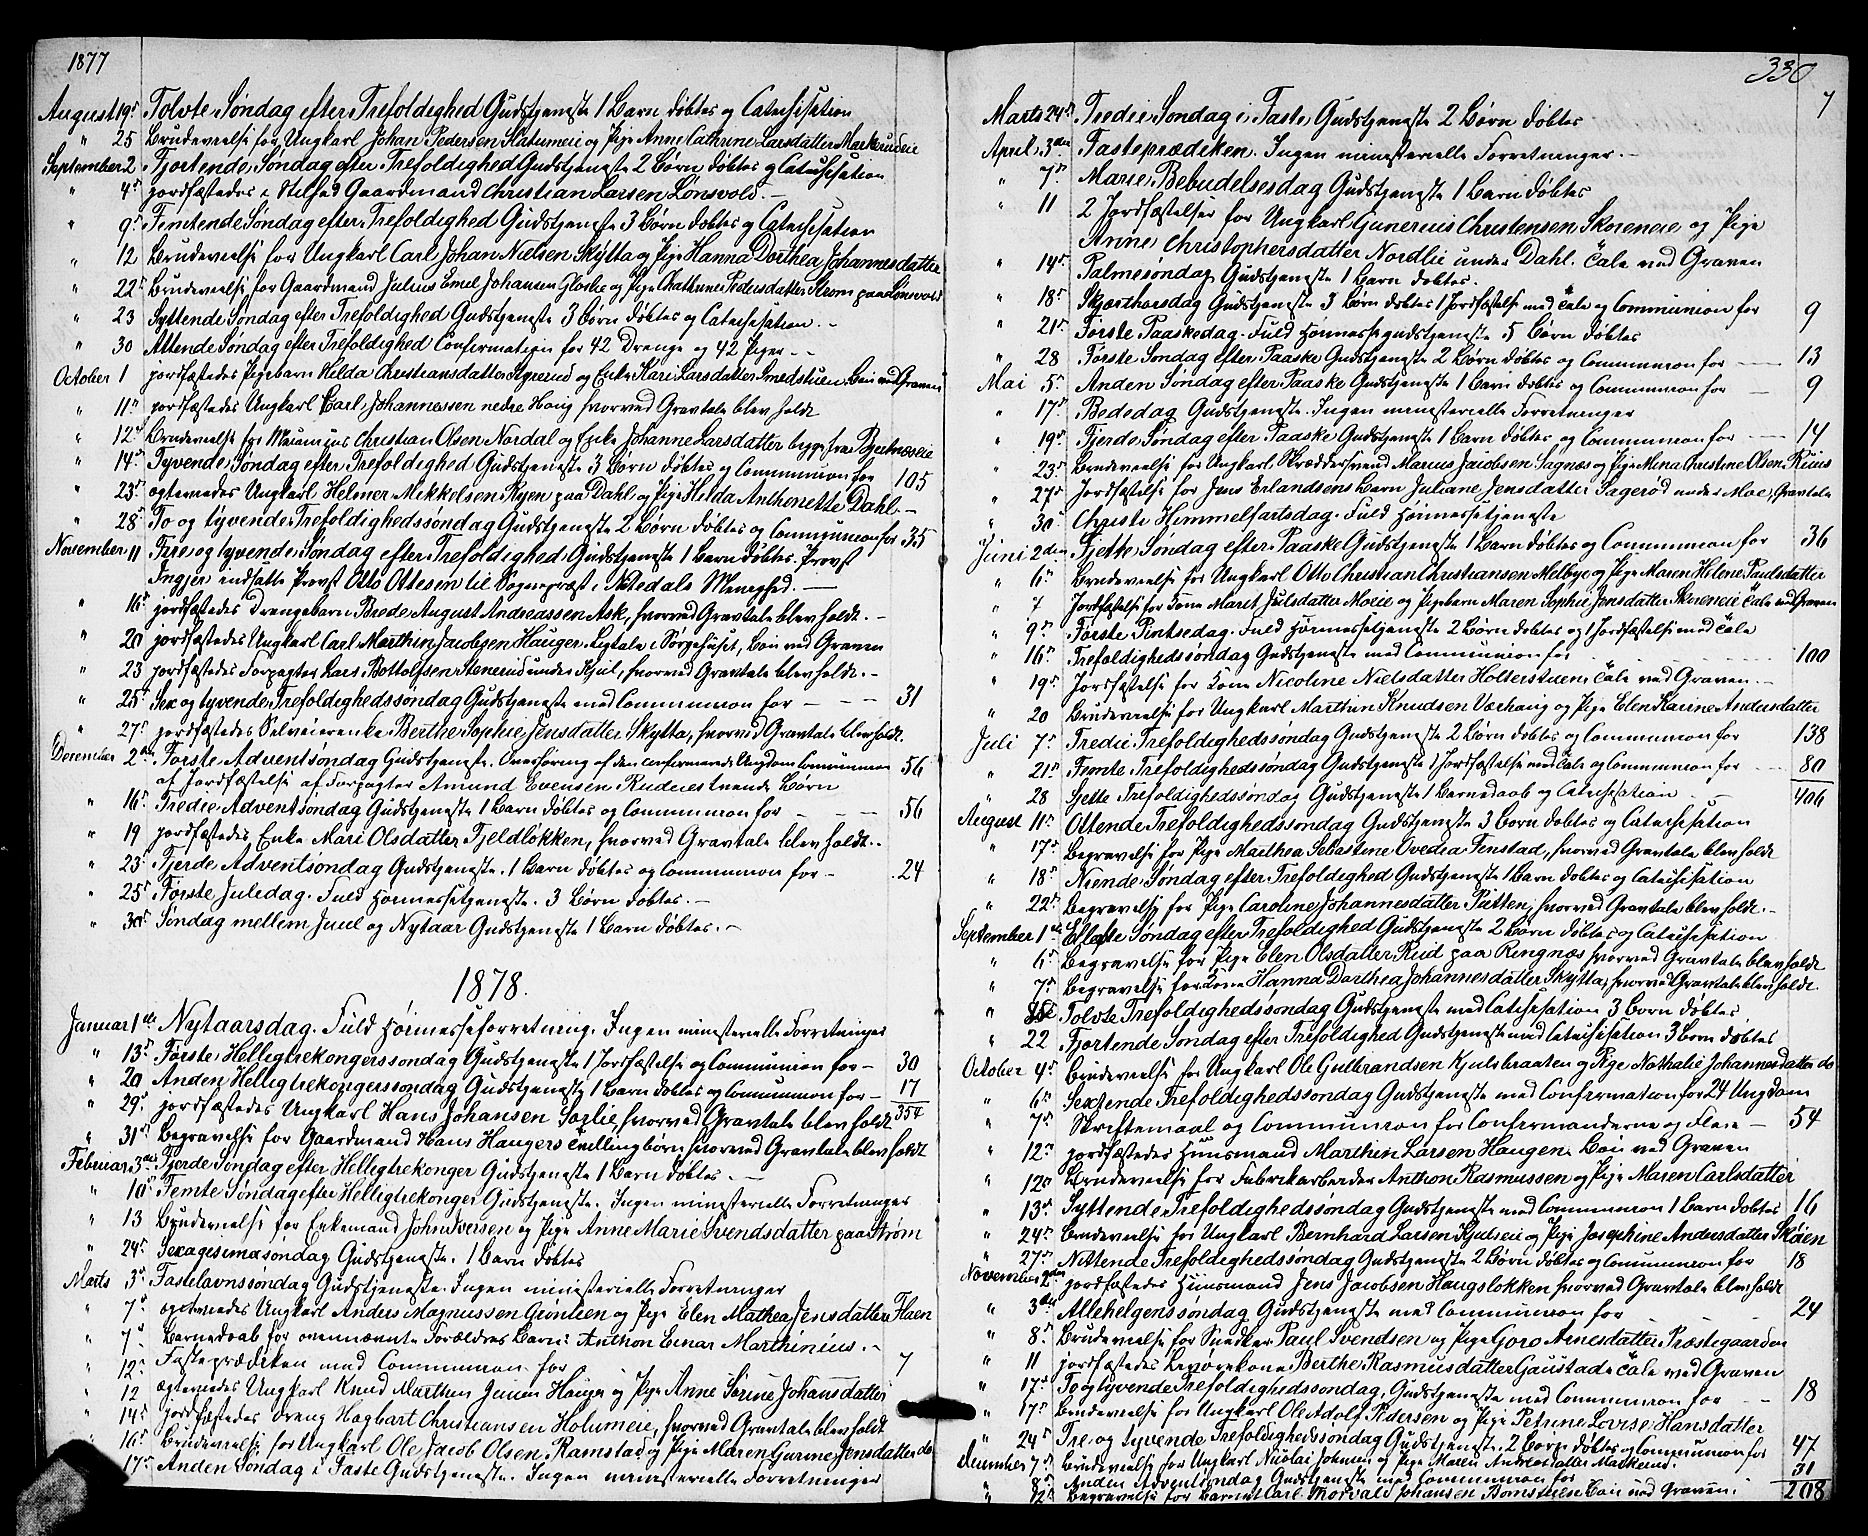 1877
August 19d Tolvte Søndag efter Trefoldighed Gudstjeneste 1 Barn døbtes og Catechisation
" 25 Brudevielse for Ungkarl Johan Pedersen og Pige Anne Cathrine Larsdatter
September 2 Fjortende Søndag efter Trefoldighed Gudstjeneste 2 Børn døbtes og Catechisation
" 4d jordfæstedes i Gaardmand Christian Larsen Lønsvold.
" 9d Femtende Søndag efter Trefoldighed Gudstjeneste 3 Børn døbtes og Catechisation
" 12 Brudevielse for Ungkarl Carl Johan Nielsen Skytta og Pige Hanna Dorthea Johannesdatter
" 22d Brudevielse for Gaardmand Julius Emil Johansen og Pige Cathrine Pedersdatter Strøm paa Lønsvold
" 23 Syttende Søndag efter Trefoldighed Gudstjeneste 3 Børn døbtes og Catechisation.
" 30 Attende Søndag efter Trefoldighed Confirmation for 42 Drenge og 42 Piger
October 1 jordfæstedes Pigebarn Hilda Christiansdatter og Enke Kari Larsdatter Smedstuen, Bøn ved Graven
" 11d jordfæstedes Ungkarl Carl Johannessen nedre Haug hvorved Gravtale blev holdt
" 12d Brudevielse for Christian Olsen Nordal og Enke Johanne Larsdatter
" 14d Tyvende Søndag efter Trefoldighed Gudstjeneste 3 Børn døbtes og Communion for 105
" 23d ægteviedes Ungkarl Helmer Mikkelsen Ryen paa Dahl og Pige Hilda Anthonette Dahl.
" 28d To og tyvende Trefoldighedssøndag Gudstjeneste 2 Børn døbtes og Communion for 35
November 11 Fire og tyvende Søndag efter Trefoldighed Gudstjeneste 1 Barn døbtes. Provst
Ingier indsatte Provst Otto Ottesen til Sogneprest i Nitedals Menighed.
" 16d jordfæstedes Drengebarn Brede August Andreassen Ask, hvorved Gravtale blev holdt.
" 20 jordfæstedes Ungkarl Carl Marthin Jacobsen Hauger. Ligtale i Sørgehuset, Bøn ved Graven
" 23 jordfæstedes Forpagter Lars Bottolfsen Stenerud under Kjul, hvorved Gravtale blev holdt.
" 25d Sex og tyvende Trefoldighedssøndag Gudstjeneste med Communion for 31
" 27d jordfæstedes Selveierenke Berthe Sophie Jensdatter Skytta, hvorved Gravtale blev holdt.
December 2den Første Adventsøndag Gudstjeneste. Overhøring af den confirmerede Ungdom Communion 56
af Jordfæstelse af Forpagter Amund Evensen Børn
" 16d Tredie Adventsøndag Gudstjeneste 1 Barn døbtes og Communion for 56
" 19 jordfæstedes Enke Mari Olsdatter Fjeldløkken, hvorved Gravtale blev holdt.
" 23d Fjerde Adventsøndag Gudstjeneste. 1 Barn døbtes og Communion for 24
" 25d Første Juledag. Fuld Høimessetjeneste. 3 Børn døbtes.
" 30d Søndag mellem Juul og Nytaar Gudstjeneste 1 Barn døbtes.
1878.
Januar 1ste Nytaarsdag. Fuld Høimesseforretning. Ingen ministerielle Forretninger
" 13d Første Helligtrekongerssøndag Gudstjeneste 1 Jordfæstelse og Communion for 30
" 20 Anden Helligtrekongerssøndag Gudstjeneste 1 Barn døbtes og Communion for 17
" 29d jordfæstedes Ungkarl Hans Johansen Sørlie, hvorved Gravtale blev holdt 354
" 31d Begravelse for Gaardmand Hans Haugers Tvillingbørn hvorved Gravtale blev holdt
Februar 3die Fjerde Søndag efter Helligtrekonger Gudstjeneste 1 Barn døbtes.
" 10d Femte Søndag efter Helligtrekonger Gudstjeneste. Ingen ministerielle Forretninger
" 13 Brudevielse for Enkemand John Iversen og Pige Anne Marie Svendsdatter paa Strøm
" 24d Sexagesimasøndag Gudstjeneste. 1 Barn døbtes
Marts 3d Fastelavnssøndag Gudstjeneste. Ingen ministerielle Forretninger
" 7d ægteviedes Ungkarl Anders Magnussen og Pige Elen Mathea Jensdatter Flaen
" 7d Barnedaab for ovennævnte Forældres Barn: Anthon Einar Marthinius.
" 12d Fasteprædiken med Communion for 7
" 12 ægteviedes Ungkarl Knud Marthin Hauger og Pige Anne Sørine Johansdatter
" 14d jordfæstedes Dreng Hagbart Christiansen, hvorved Gravtale blev holdt
" 16d Brudevielse for Ungkarl Ole Jacob Olsen Ramstad og Pige Maren Gurine Jensdatter do
17d Anden Søndag i Faste Gudstjeneste. Ingen ministerielle Forretninger
330
7
Marts 24d Tredie Søndag i Faste Gudstjeneste 2 Børn døbtes
April 3die Fasteprædiken. Ingen ministerielle Forretninger.
" 7d Marie Bebudelsesdag Gudstjeneste 1 Barn døbtes
" 11 2 Jordfæstelser for Ungkarl Gunerius Christensen og Pige
Anne Christophersdatter Nordlie under Dahl. Tale ved Graven
" 14d Palmesøndag Gudstjeneste 1 Barn døbtes.
" 18d Skjærthorsdag Gudstjeneste 3 Børn døbtes 1 Jordfæstelse med Tale og Communion for 9
" 21d Første Paaskedag. Fuld Høimessegudstjeneste 5 Børn døbtes
" 28 Første Søndag efter Paaske Gudstjeneste 2 Børn døbtes og Communion for 13
Mai 5d Anden Søndag efter Paaske Gudstjeneste 1 Barn døbtes og Communion for 9
" 17d Bededag Gudstjeneste. Ingen ministerielle Forretninger
" 19d Fjerde Søndag efter Paaske Gudstjeneste 1 Barn døbtes og Communion for 14
" 23d Brudevielse for Ungkarl Skræddersvend Marius Jacobsen Sagnæs og Pige Mina Christine Olsen
" 27d Jordfæstelse for Jens Erlandsens Barn Juliane Jensdatter under Moe, Gravtale
" 30d Christi Himmelfartsdag. Fuld Høimessetjeneste
Juni 2den Sjette Søndag efter Paaske Gudstjeneste 1 Barn døbtes og Communion for 36
" 6d Brudevielse for Ungkarl Otto Christian Christiansen Melbye og Pige Maren Helene Paulsdatter
" 7 Jordfæstelse for Kone Marit Julsdatter Moeie og Pigebarn Maren Sophie Jensdatter Tale ved Graven
" 9d Første Pintsedag. Fuld Høimessetjeneste 2 Børn døbtes og 1 Jordfæstelse med Tale
" 16d Trefoldighedssøndag Gudstjeneste med Communion for 100
" 19d Jordfæstelse for Kone Nicoline Nielsdatter Holterstuen Tale ved Graven.
" 20 Brudevielse for Ungkarl Marthin Knudsen Værhaug og Pige Elen Karine Andersdatter
Juli 7d Tredie Trefoldighedssøndag Gudstjeneste 2 Børn døbtes og Communion for 138
" 21d Femte Trefoldighedssøndag Gudstjeneste 1 Jordfæstelse med Tale og Communion for 80
" 28 Sjette Trefoldighedssøndag Gudstjeneste 1 Barnedaab og Catechisation 406
August 11d Ottende Trefoldighedssøndag Gudstjeneste 3 Børn døbtes og Catechisation
" 17d Begravelse for Pige Marthea Sebastine Ovedia Tenstad, hvorved Gravtale blev holdt
" 18d Niende Søndag efter Trefoldighed Gudstjeneste 1 Barn døbtes og Catechisation
" 22d Begravelse for Pige Caroline Johannesdatter Putten, hvorved Gravtale blev holdt.
September 1ste Ellefte Søndag efter Trefoldighed Gudstjeneste 2 Børn døbtes og Catechisation
" 6d Begravelse for Pige Elen Olsdatter Ruud paa Ringnæs hvorved Gravtale blev holdt
" 7d Begravelse for Kone Hanna Dorthea Johannesdatter Skytta, hvorved Gravtale blev holdt.
" Tolvte Trefoldighedssøndag Gudstjeneste med Catechisation 3 Børn døbtes
" 22 Fjortende Søndag efter Trefoldighed Gudstjeneste med Catechisation 3 Børn døbtes
October 4d Brudevielse for Ungkarl Ole Gulbrandsen Kjulsbraaten og Pige Nathalie Johannesdatter do
" 6d Sextende Trefoldighedssøndag Gudstjeneste med Confirmation for 24 Ungdom
" 7d Skriftemaal og Communion for Confirmanderne og Flere 54
" 12d jordfæstedes Huusmand Marthin Larsen Haugen. Bøn ved Graven
" 12d Brudevielse for Fabrikarbeider Anthon Rasmussen og Pige Maren Carlsdatter
" 13d Syttende Trefoldighedssøndag Gudstjeneste med Communion 1 Barn døbtes 16
" 24d Brudevielse for Ungkarl Bernhard Larsen Kjulseie og Pige Josephine Andersdatter Skøien
" 27d Nittende Trefoldighedssøndag Gudstjeneste 2 Børn døbtes og Communion for 18
November 2den jordfæstedes Huusmand Jens Jacobsen Haugsløkken hvorved Gravtale blev holdt
" 3die Allehelgenssøndag Gudstjeneste med Communion for 24
" 8d Brudevielse for Snedker Paul Svendsen og Pige Goro Arnesdatter Præstegaarden
" 11 jordfæstedes Berthe Rasmusdatter Gaustad Tale ved Graven
" 17d To og tyvende Trefoldighedssøndag, Gudstjeneste med Communion for 18
" 17d Brudevielse for Ungkarl Ole Adolf Pedersen og Pige Petrine Lovise Hansdatter
" 24d Tre og tyvende Trefoldighedssøndag Gudstjeneste. 2 Børn døbtes og Communion for 47
December 7d Brudevielse for Ungkarl Nicolai Johnsen og Pige Maren Andreasdatter Markerud.
" 8d Anden Adventsøndag Gudstjeneste med Communion for 31
" 12d Begravelse for Barnet Carl Thorvald Johansen Bøn ved Graven. 208